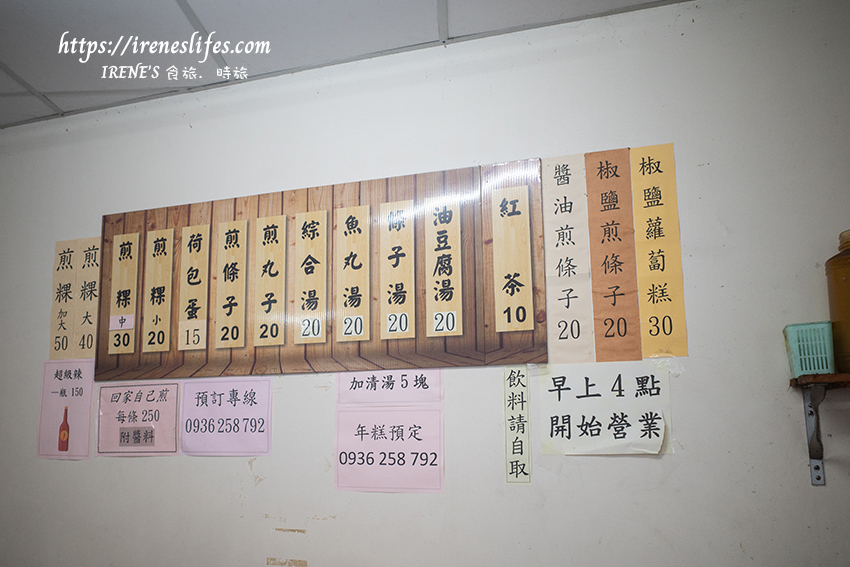 https://ireneslifes.com
IRENE'S 食旅．時旅
煎粿 加大 50
煎粿 大 40
煎粿 中 30
煎粿 小 20
荷包蛋 15
煎條子 20
煎丸子 20
綜合湯 20
魚丸湯 20
條子湯 20
油豆腐湯 20
紅茶 10
醬油煎條子 20
椒鹽煎條子 20
椒鹽蘿蔔糕 30
超級辣
一瓶 150
回家自己煎
每條 250
附醬料
預訂專線
0936 258 792
加清湯 5 塊
年糕預定
0936 258 792
飲料請自取
早上 4 點
開始營業